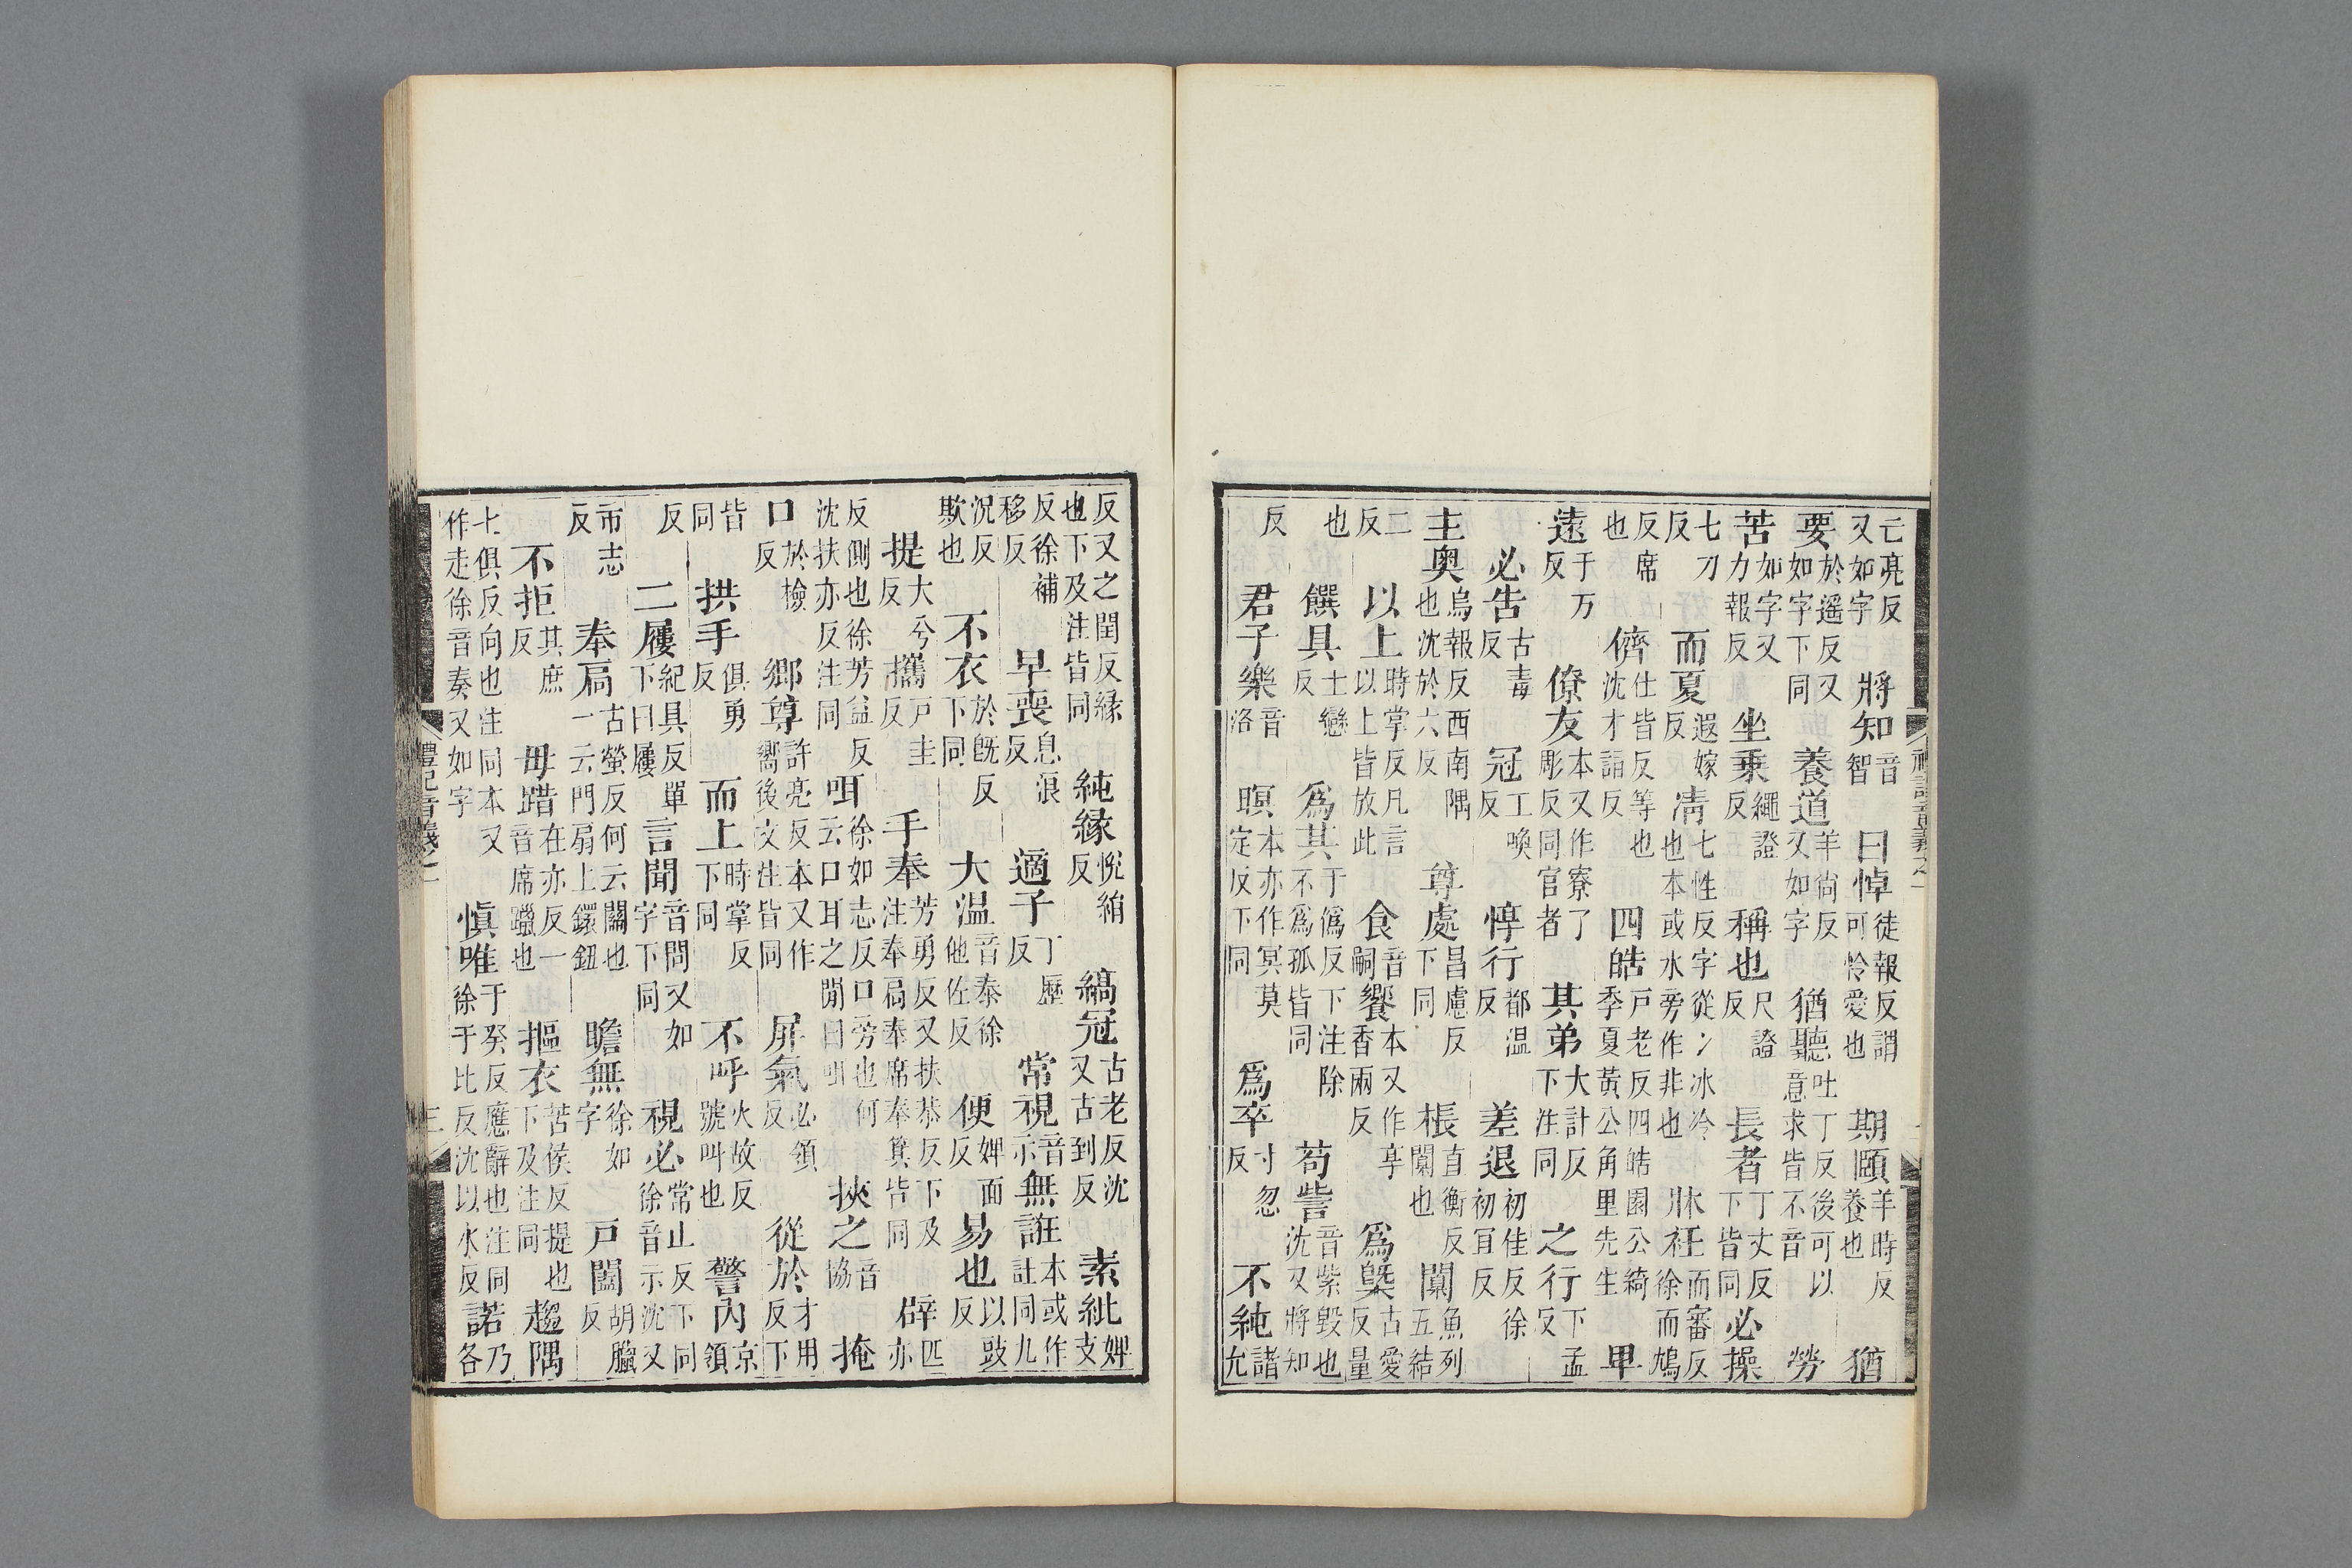 亡亮反又如字 將知音智 曰悼徒報反謂可怜愛也 期頤羊時反養也 猶
要於遥反又如字下同 養道羊尙反又如字 猶聽吐丁反後可以意求皆不音 勞
苦如字又力報反 坐乗繩證反 稱也尺證反 長者丁丈反下皆同 必操
七刀反 而夏遐嫁反 凊七性反字從冫冰冷也本或水旁作非也 牀衽而審反徐而鴆
反席也 儕仕皆反等也沈才詣反 四皓戶老反四皓園公綺季夏黃公角里先生 甲
遠于万反 僚友本又作寮了彫反同官者 其弟大計反下注同 之行下孟反
必告古毒反 冠工喚反 惇行都温反 差退初佳反徐初宜反
主奥烏報反西南隅也沈於六反 尊處昌慮反下同 棖直衡反闑也 闑魚列五結
二反 以上時掌反凡言以上皆放此 食音嗣 饗本又作享香兩反 爲槩古愛反量
也 饌具士戀反 爲其于僞反下注除不爲孤皆同 苟訾音紫毀也沈又將知
反 君子樂音洛 暝本亦作冥莫定反下同 爲卒寸忽反 不純諸允
反又之閏反緣也下及注皆同 純緣悅絹反 縞冠古老反沈又古到反 素紕婢支
反徐補移反 早喪息浪反 適子丁歷反 常視音示 無誑本或作註同九
況反欺也 不衣於旣反下同 大温音泰徐他佐反 便婢面反 易也以豉反
提大兮反 攜戶圭反 手奉芳勇反又扶恭反下及注奉扃奉席奉箕皆同 辟匹亦
反側也徐芳益反沈扶亦反注同 咡徐如志反口旁也何云口耳之閒曰咡 挾之音協 掩
口於檢反 鄉尊許亮反本又作嚮後文注皆同 屏氣必領反 從於才用反下
皆同 拱手俱勇反 而上時掌反下同 不呼火故反號叫也 警內京領
反 二屨紀具反單下曰屨 言聞音問又如字下同 視必常止反下同徐音示沈又
市志反 奉扃古螢反何云關也一云門扇上鐶鈕 瞻無徐如字 戶闔胡臘反
不拒其庶反 毋踖在亦反一音席躐也 摳衣苦侯反提也下及注同 趨隅
七俱反向也注同本又作走徐音奏又如字 愼唯于癸反應辭也注同徐于比反沈以水反 諾乃各
禮記音義之一
三